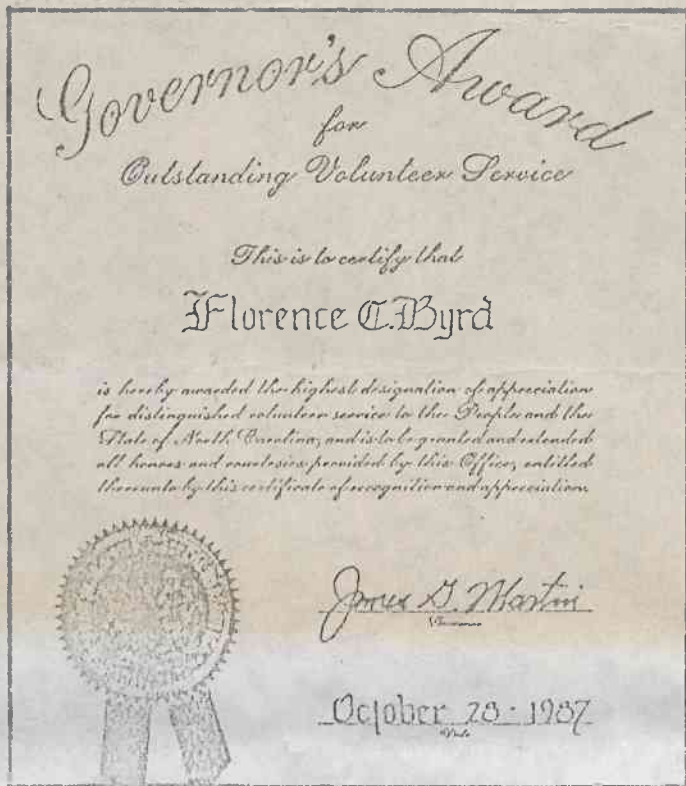 Governor's Award
for
Outstanding Volunteer Service
This is to certify that
Florence C. Byrd
is hereby awarded the highest designation of appreciation
for distinguished volunteer service to the People and the
State of North Carolina, and is to be granted and extended
all honors and courtesies provided by this Office, entitled
thereunto by this certificate of recognition and appreciation.
James G. Martin
Governor
October 28 - 1987
Date